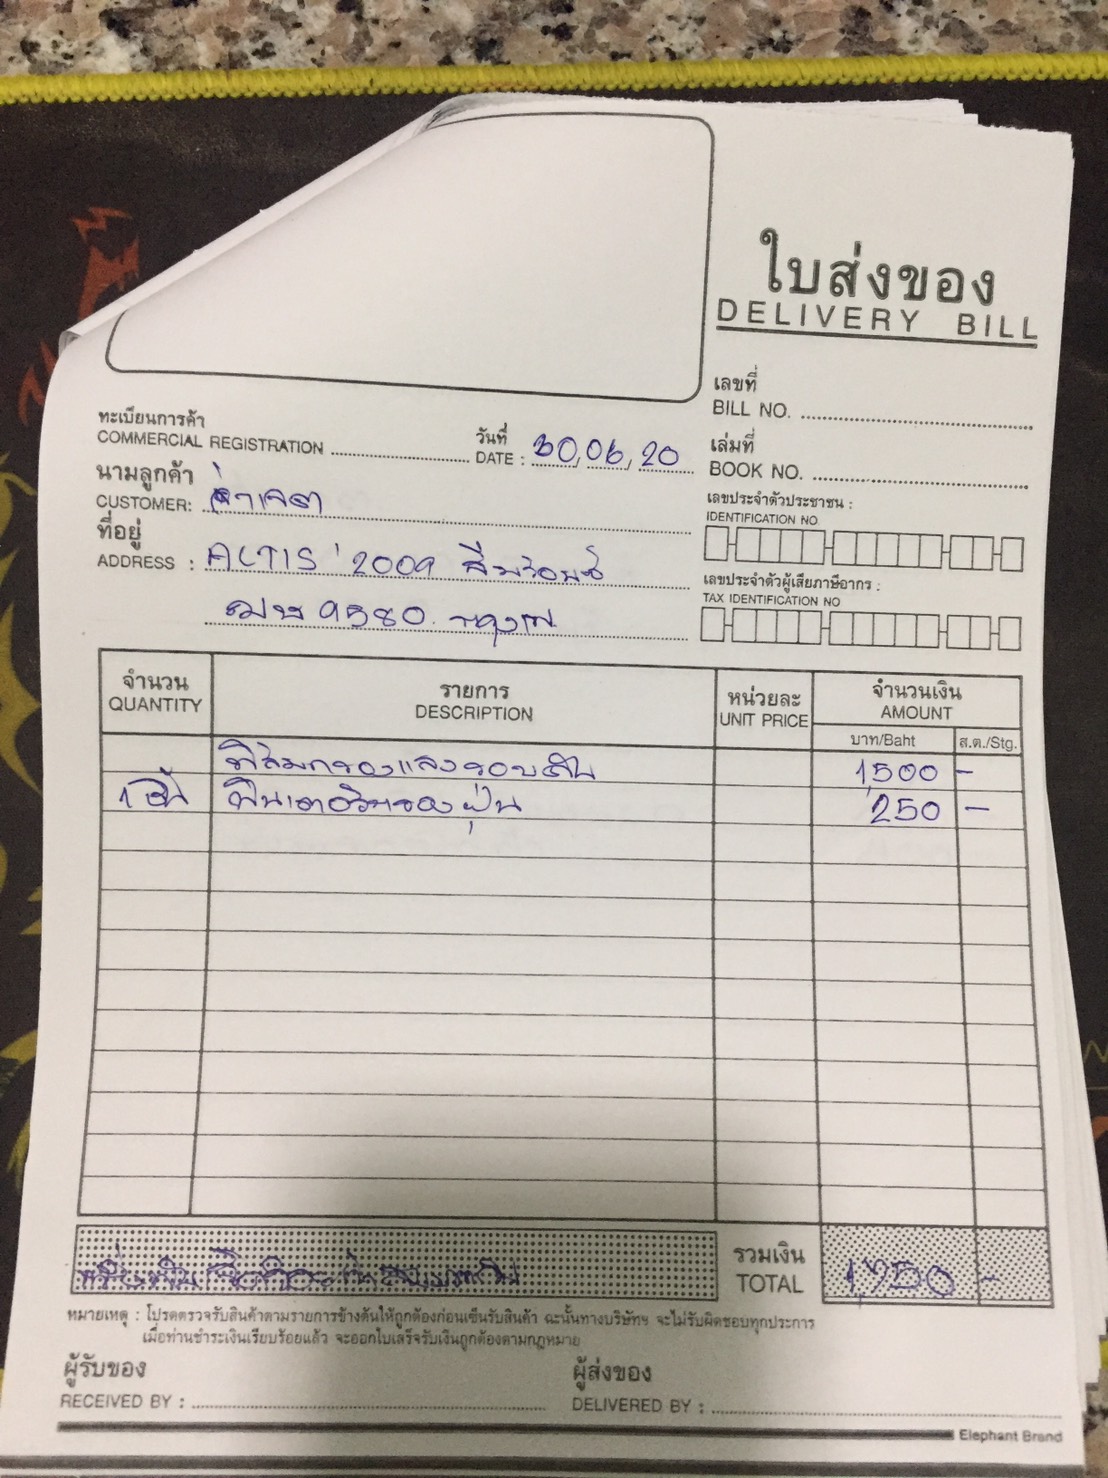 ใบส่งของ
DELIVERY BILL
เลขที่
BILL NO.
ทะเบียนการค้า
COMMERCIAL REGISTRATION
วันที่
DATE : 30, 06, 20
เล่มที่
BOOK NO.
นามลูกค้า
CUSTOMER:
เลขประจำตัวประชาชน :
IDENTIFICATION NO
ที่อยู่
ADDRESS : ALTIS '2009
เลขประจำตัวผู้เสียภาษีอากร :
TAX IDENTIFICATION NO
9580
จำนวน
QUANTITY
รายการ
DESCRIPTION
หน่วยละ
UNIT PRICE
จำนวนเงิน
AMOUNT
บาท/Baht
ส.ต./Stg.
ฟิล์มกรองแสงรอบคัน 1,500 -
1 250 -
รวมเงิน
TOTAL 1,750 -
หมายเหตุ : โปรดตรวจรับสินค้าตามรายการข้างต้นให้ถูกต้องก่อนเซ็นรับสินค้า ฉะนั้นทางบริษัทฯ จะไม่รับผิดชอบทุกประการ
เมื่อท่านชำระเงินเรียบร้อยแล้ว จะออกใบเสร็จรับเงินถูกต้องตามกฎหมาย
ผู้รับของ
RECEIVED BY :
ผู้ส่งของ
DELIVERED BY :
Elephant Brand